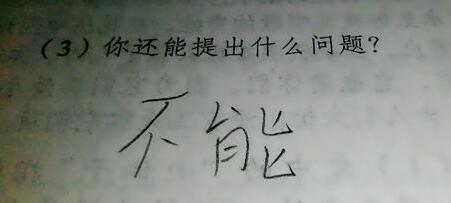 (3)你还能提出什么问题?
不能